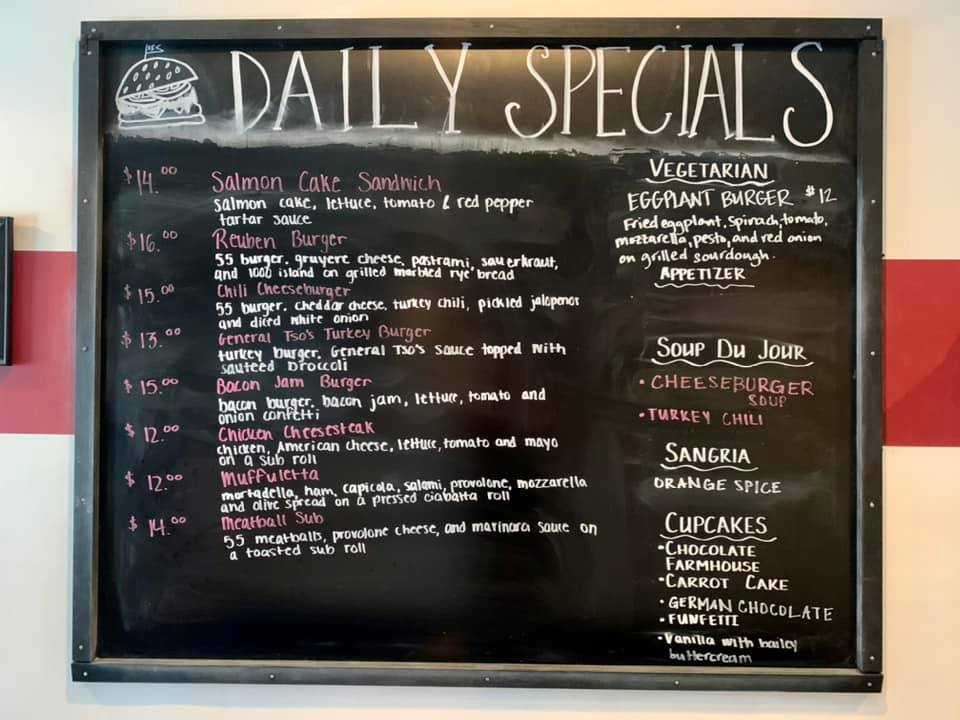 DAILY SPECIALS
$14.00 Salmon Cake Sandwich
salmon cake, lettuce, tomato & red pepper
tartar sauce
$16.00 Reuben Burger
55 burger, gruyere cheese, pastrami, sauerkraut,
and 1000 island on grilled marbled rye bread
$15.00 Chili Cheeseburger
55 burger, cheddar cheese, turkey chili, pickled jalapenos
and diced white onion
$13.00 General Tso's Turkey Burger
turkey burger, General Tso's sauce topped with
sauteed broccoli
$15.00 Bacon Jam Burger
bacon burger, bacon jam, lettuce, tomato and
onion confetti
$12.00 Chicken Cheesesteak
chicken, American cheese, lettuce, tomato and mayo
on a sub roll
$12.00 Muffuletta
mortadella, ham, capicola, salami, provolone, mozzarella
and olive spread on a pressed ciabatta roll
$14.00 Meatball Sub
55 meatballs, provolone cheese, and marinara sauce on
a toasted sub roll
VEGETARIAN
EGGPLANT BURGER $12
Fried eggplant, spinach, tomato,
mozzarella, pesto, and red onion
on grilled sourdough.
APPETIZER
SOUP DU JOUR
• CHEESEBURGER
SOUP
• TURKEY CHILI
SANGRIA
ORANGE SPICE
CUPCAKES
• CHOCOLATE
FARMHOUSE
• CARROT CAKE
• GERMAN CHOCOLATE
• FUNFETTI
• Vanilla with bailey
buttercream